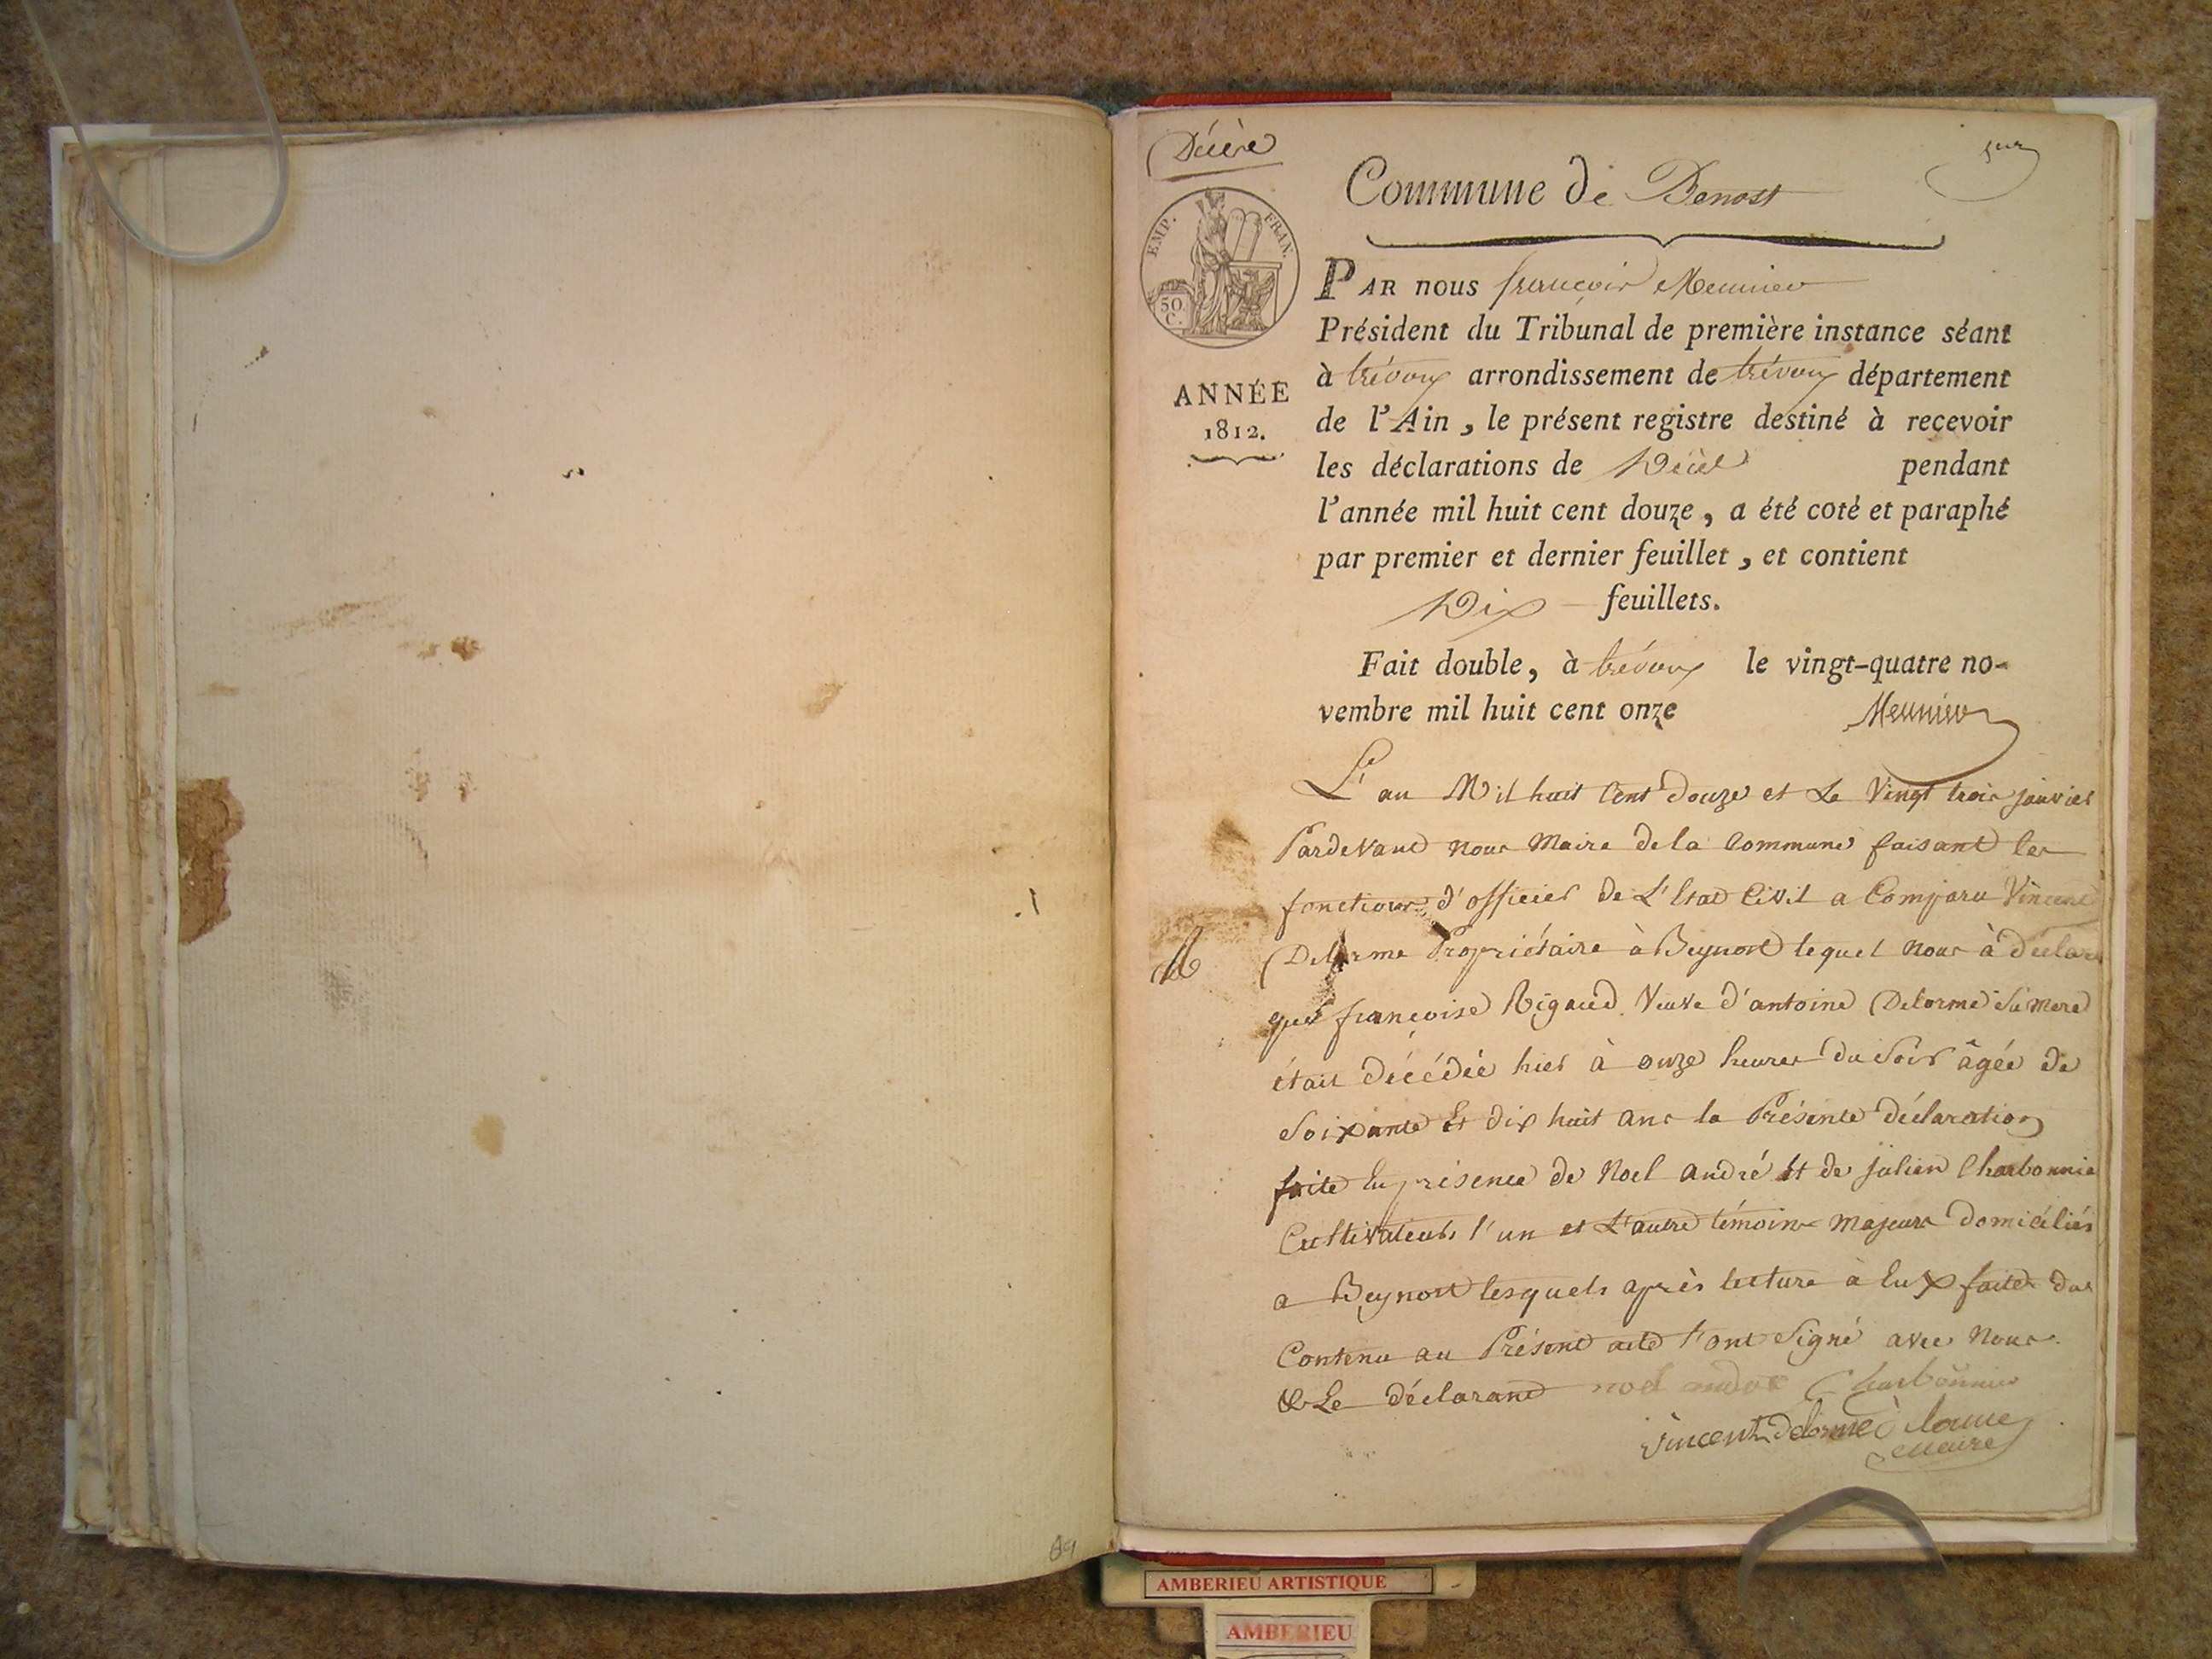 Décès
Commune de Benost
EMP. FRAN.
50 C.
ANNÉE
1812.
PAR nous françois Meunier
Président du Tribunal de première instance séant
à trévoux arrondissement de trévoux département
de l'Ain, le présent registre destiné à recevoir
les déclarations de Décès pendant
l'année mil huit cent douze, a été coté et paraphé
par premier et dernier feuillet, et contient
Dix feuillets.
Fait double, à trévoux le vingt-quatre no-
vembre mil huit cent onze
Meunier
L'an Mil huit Cent douze et Le Vingt trois janvier
Pardevant nous Maire de la Commune faisant les
fonctions d'officier de L'Etat Civil a Comparu Vincent
Delorme Propriétaire à Beynost lequel nous à déclaré
que françoise Rigaud Veuve d'antoine Delorme Sa Mere
était décédée hier à onze heures du Soir âgée de
Soixante Et dix huit ans la Présente déclaration
faite En présence de Noel andré Et de julien Charbonnie
Cultivateurs l'un et L'autre témoins majeurs domiciliés
a Beynost lesquels après lecture à Eux faite du
Contenu au Présent acte l'ont Signé avec Nous
& Le déclarant noel andre Charbonnier
vincent Delorme
Maire
89
AMBERIEU ARTISTIQUE
AMBERIEU